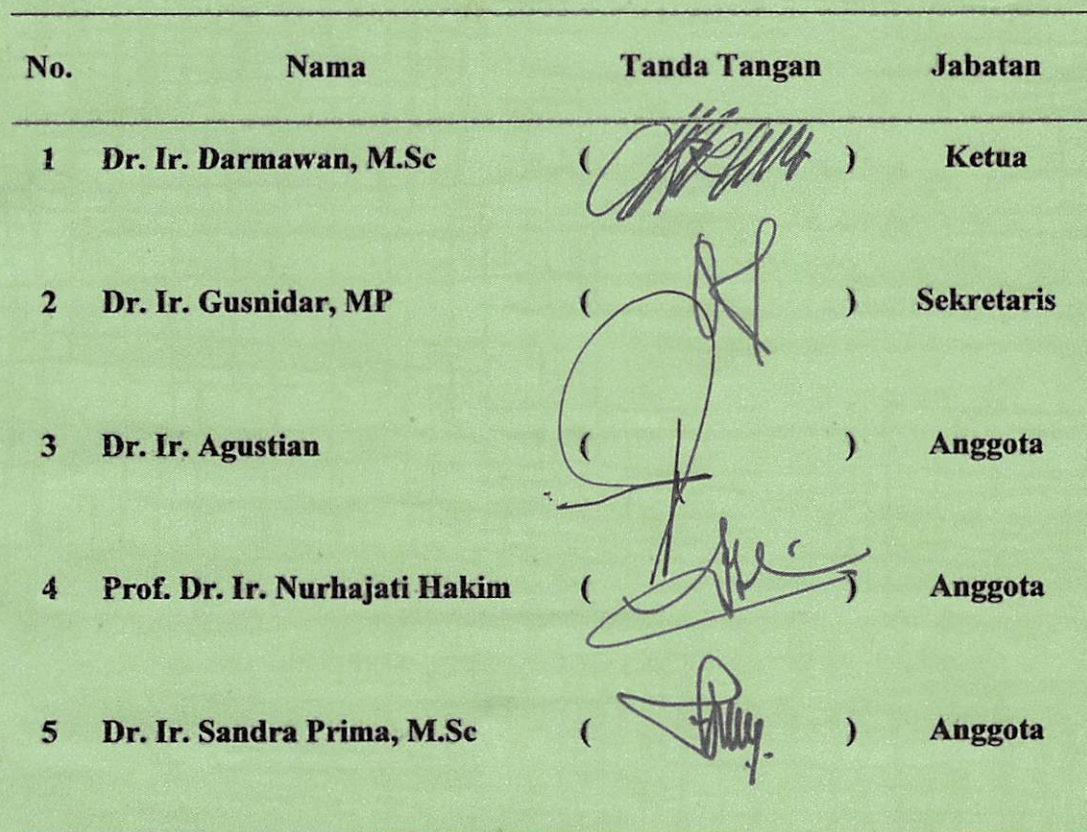 No. Nama Tanda Tangan Jabatan
1 Dr. Ir. Darmawan, M.Sc ( ) Ketua
2 Dr. Ir. Gusnidar, MP ( ) Sekretaris
3 Dr. Ir. Agustian ( ) Anggota
4 Prof. Dr. Ir. Nurhajati Hakim ( ) Anggota
5 Dr. Ir. Sandra Prima, M.Sc ( ) Anggota